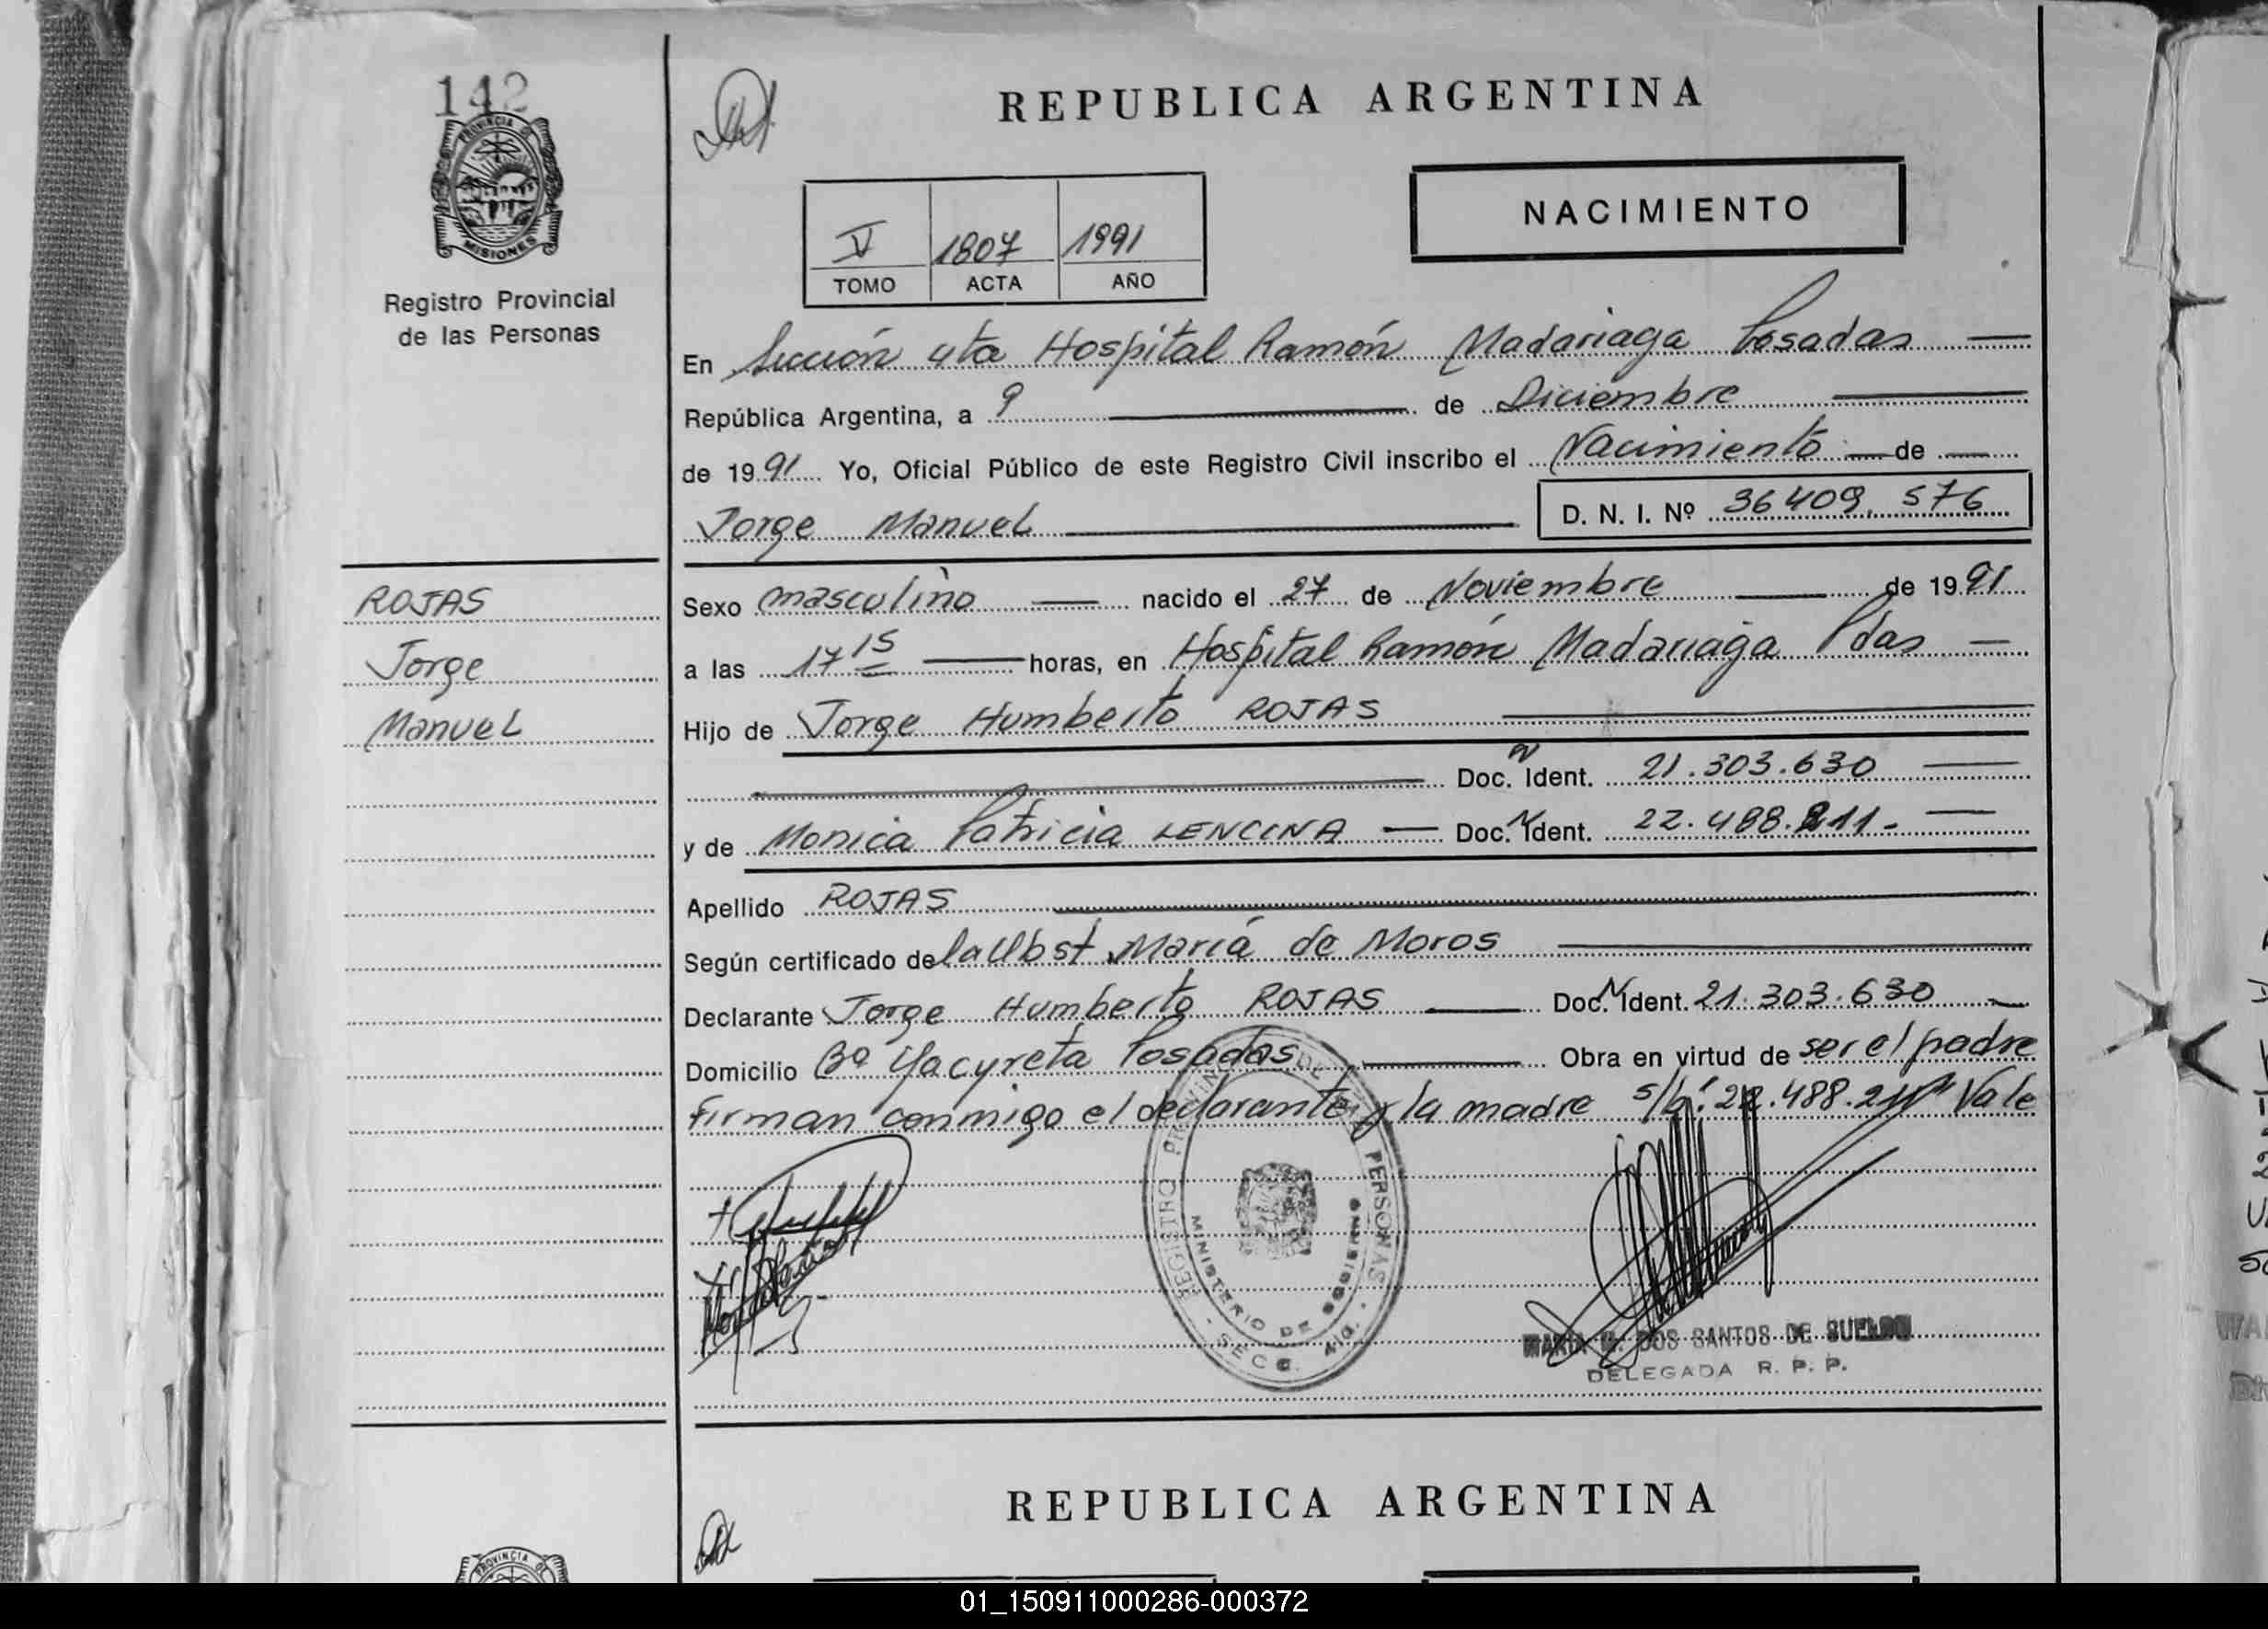 142
PROVINCIA DE
MISIONES
Registro Provincial
de las Personas
ROJAS
Jorge
Manuel
REPUBLICA ARGENTINA
V 1807 1991
TOMO ACTA AÑO
NACIMIENTO
En Sección 4ta Hospital Ramón Madariaga Posadas
República Argentina, a 9 de Diciembre
de 1991 Yo, Oficial Público de este Registro Civil inscribo el Nacimiento de
Jorge Manuel D. N. I. Nº 36409.576
Sexo masculino nacido el 27 de Noviembre de 1991
a las 17 15 horas, en Hospital Ramón Madariaga Pdas
Hijo de Jorge Humberto ROJAS
Doc. N Ident. 21.303.630
y de Monica Patricia LENCINA Doc. N Ident. 22.488.211.
Apellido ROJAS
Según certificado de la Obst María de Moros
Declarante Jorge Humberto ROJAS Doc. N Ident. 21.303.630
Domicilio Bº Yacyreta Posadas Obra en virtud de ser el padre
firman conmigo el declarante y la madre s/b: 22.488.211 Vale
REGISTRO PROVINCIAL DE LAS PERSONAS
MINISTERIO DE GOBIERNO
SECC. 4ta.
DOS SANTOS DE
DELEGADA R. P. P.
REPUBLICA ARGENTINA
PROVINCIA DE
01_150911000286-000372